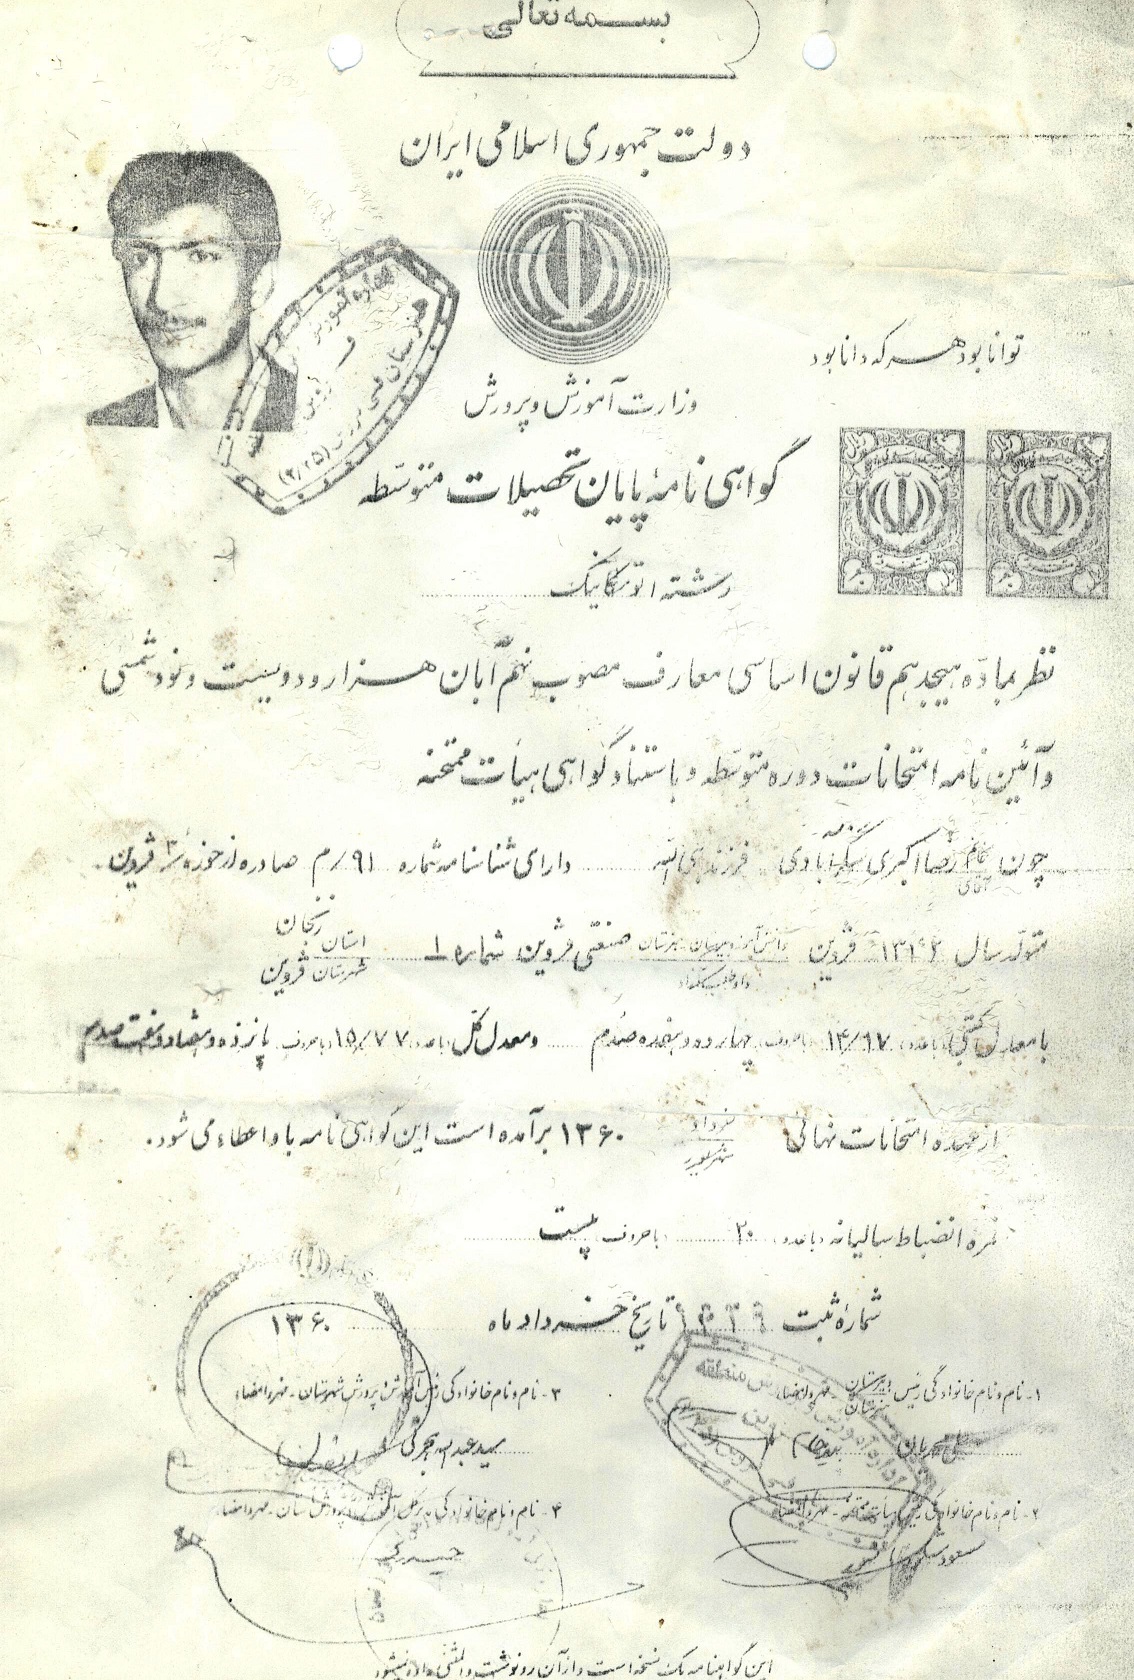 بسمه تعالی
دولت جمهوری اسلامی ایران
توانا بود هر که دانا بود
وزارت آموزش و پرورش
گواهی نامهٔ پایان تحصیلات متوسّطه
رشته اتومکانیک
نظر بمادّه هیجدهم قانون اساسی معارف مصوب نهم آبان هزار و دویست و نود شمسی
و آئین نامه امتحانات دوره متوسّطه و باستناد گواهی هیأت ممتحنه
چون خانم آقای رضا اکبری فرزند دارای شناسنامه شماره ۹۱/م صادره از حوزه ۳ قزوین
متولد سال قزوین دانش آموز دبیرستان هنرستان داوطلب متفرقه صنعتی قزوین شماره ۱ استان زنجان شهرستان قزوین
با معدل کتبی (با عدد) ۱۴/۱۷ (با حروف) چهارده و هفده صدم و معدل کل (با عدد) ۱۵/۷۷ (با حروف) پانزده و هفتاد و هفت صدم
از عهده امتحانات نهائی خرداد شهریور ۱۳۶۰ برآمده است این گواهی نامه باو اعطاء می شود.
نمره انضباط سالیانه (با عدد) ۲۰ (با حروف) بیست
شمارهٔ ثبت تاریخ خرداد ماه ۱۳۶۰
۱- نام و نام خانوادگی رئیس دبیرستان هنرستان - مهر و امضاء
۳- نام و نام خانوادگی رئیس آموزش و پرورش شهرستان - مهر و امضاء
۲- نام و نام خانوادگی رئیس هیأت ممتحنه - مهر و امضاء
۴- نام و نام خانوادگی مدیر کل آموزش و پرورش استان - مهر و امضاء
این گواهینامه یک نسخه است و از آن رونوشت و المثنی داده نمیشود